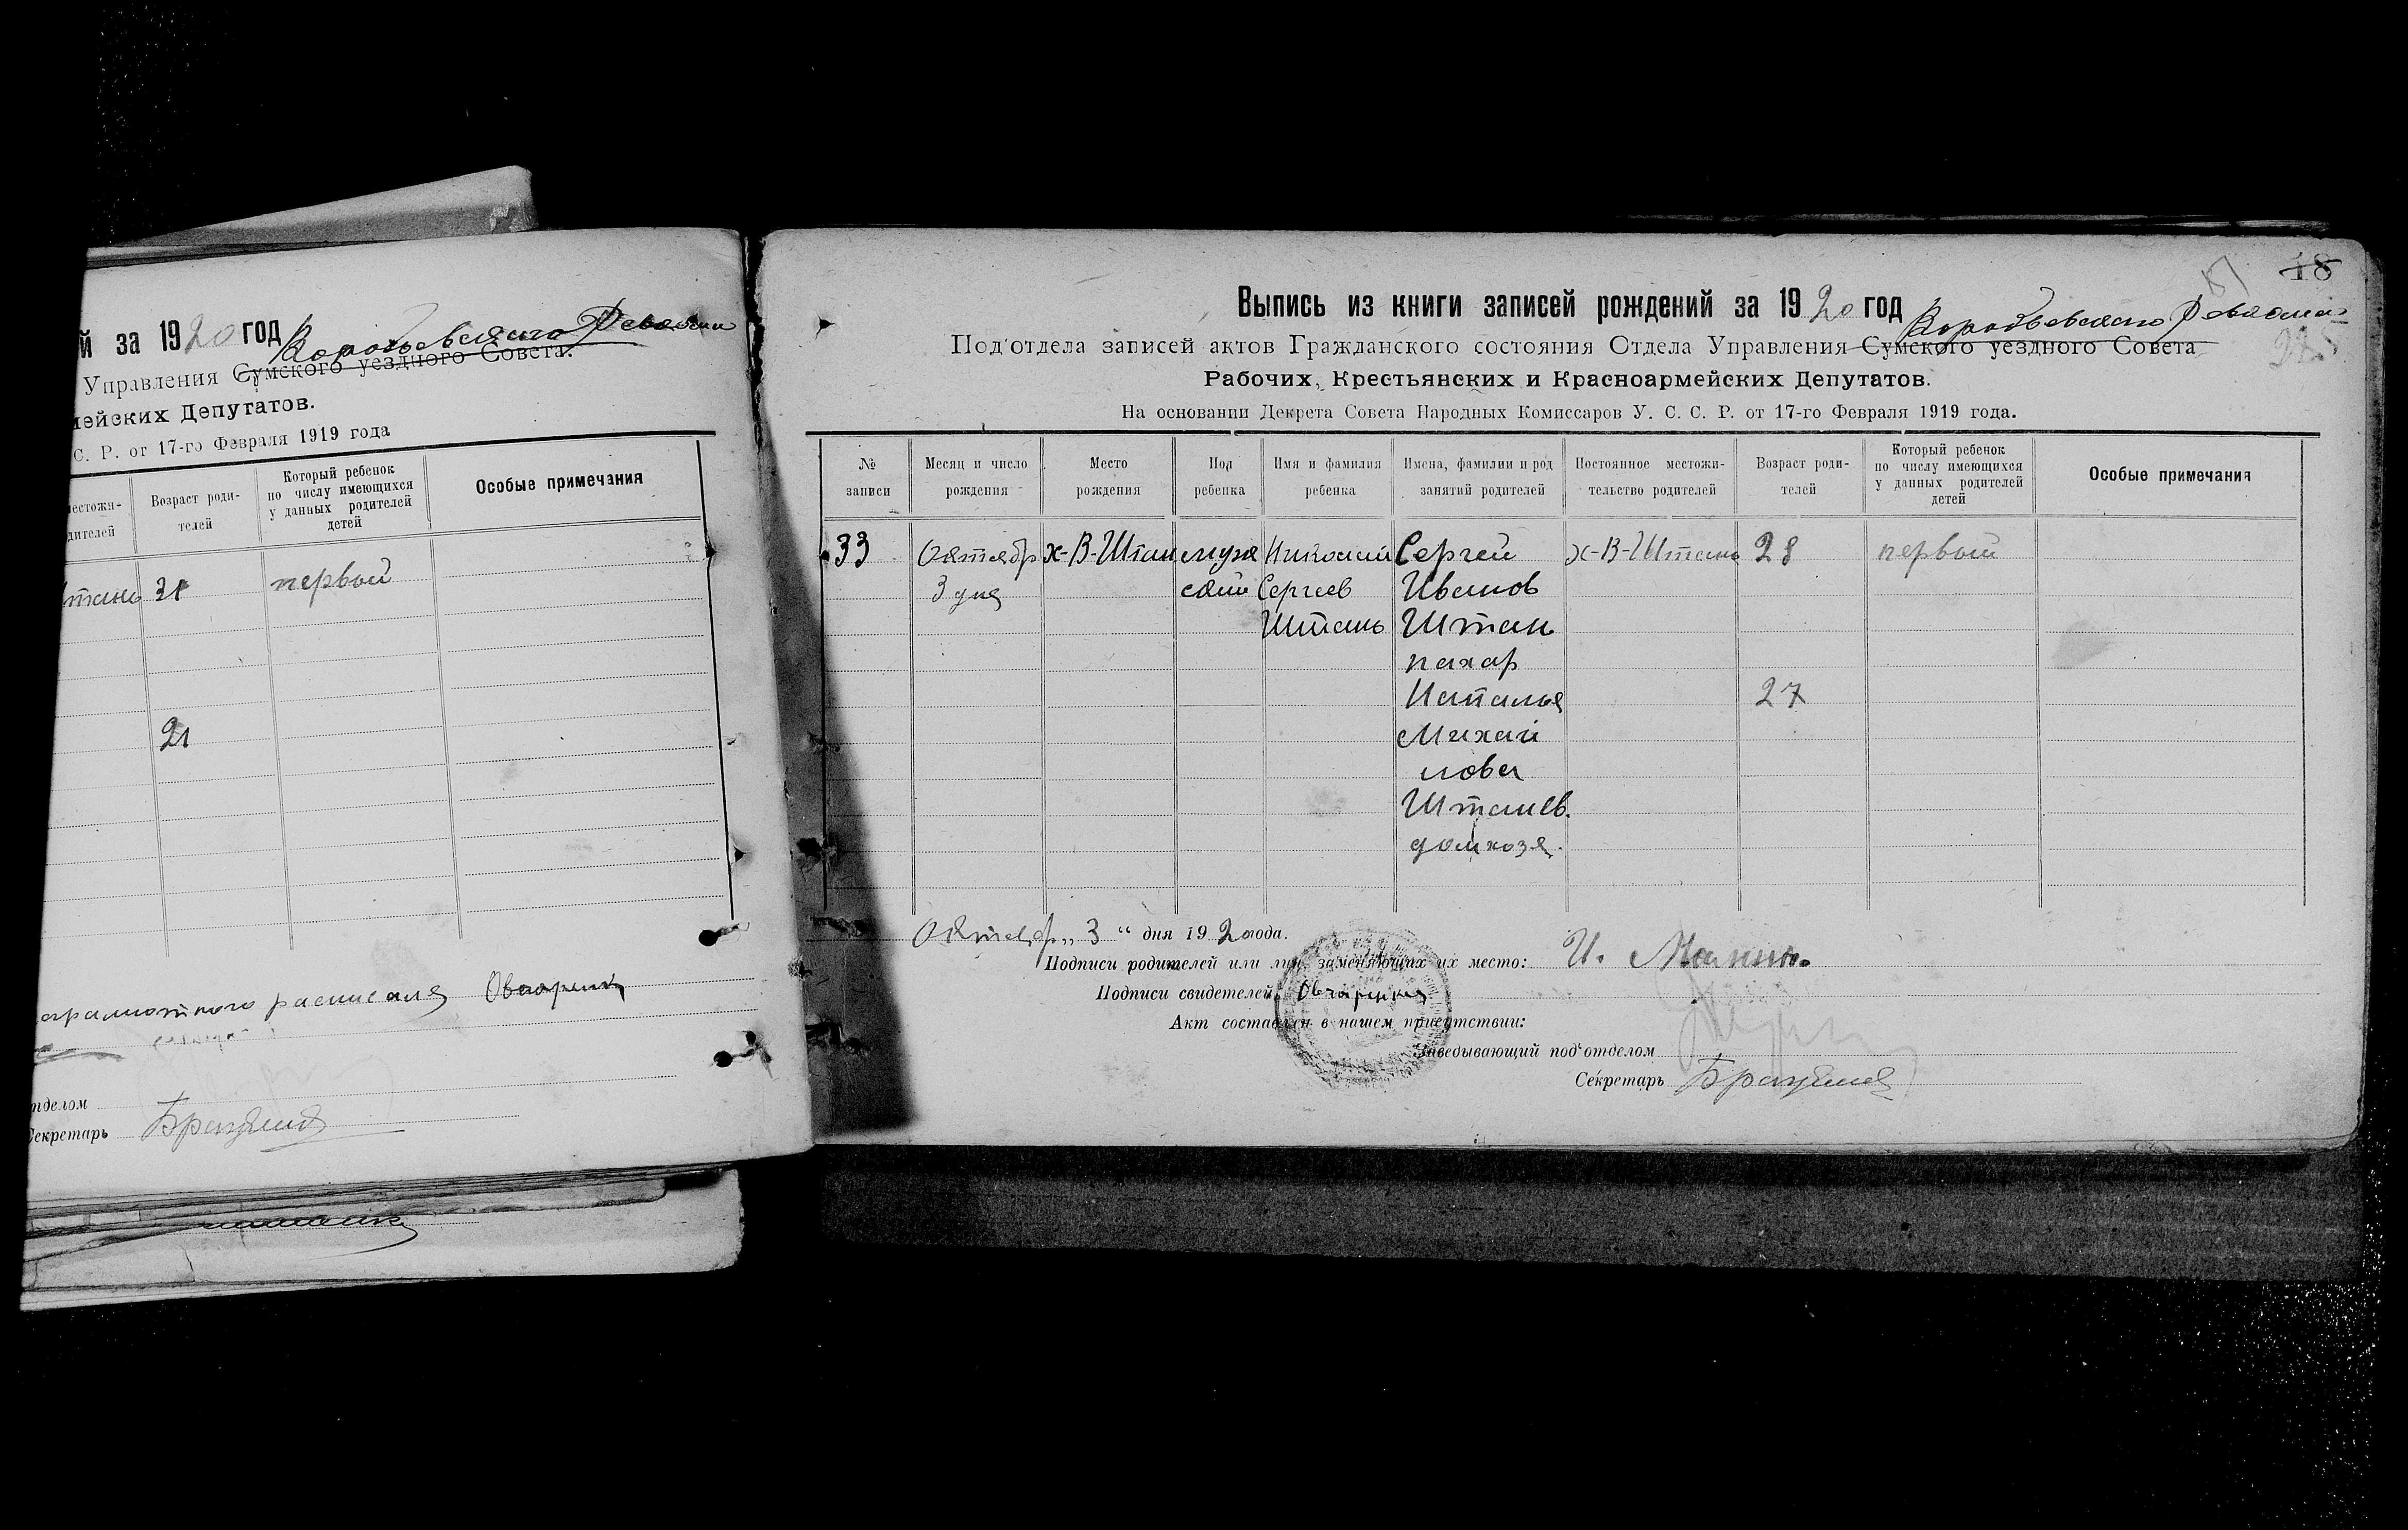 й за 1920 год
Управления Сумского уездного Совета.
мейских Депутатов.
С. Р. от 17-го Февраля 1919 года
местожи-
дителей
Возраст роди-
телей
Который ребенок
по числу имеющихся
у данных родителей
детей
Особые примечания
штань 21 первый
21
расписался Овчаренко
отделом
Секретарь
18
Выпись из книги записей рождений за 1920 год
Под'отдела записей актов Гражданского состояния Отдела Управления Сумского уездного Совета
Рабочих, Крестьянских и Красноармейских Депутатов.
На основании Декрета Совета Народных Комиссаров У. С. С. Р. от 17-го Февраля 1919 года.
№
записи
Месяц и число
рождения
Место
рождения
Пол
ребенка
Имя и фамилия
ребенка
Имена, фамилии и род
занятий родителей
Постоянное местожи-
тельство родителей
Возраст роди-
телей
Который ребенок
по числу имеющихся
у данных родителей
детей
Особые примечания
33 Октябр х-В-Штан муж Николай Сергей х-В-Штань 28 первый
3 дня ской Сергеев Иванов
Штань Штань
пахар
Наталья 27
Михай
лова
Штанев.
домхозя.
Октябр „ 3 “ дня 1920 года.
Подписи родителей или лиц, заменяющих их место: И.
Подписи свидетелей, Овчаренко
Акт составлен в нашем присутствии:
Заведывающий под'отделом
Секретарь